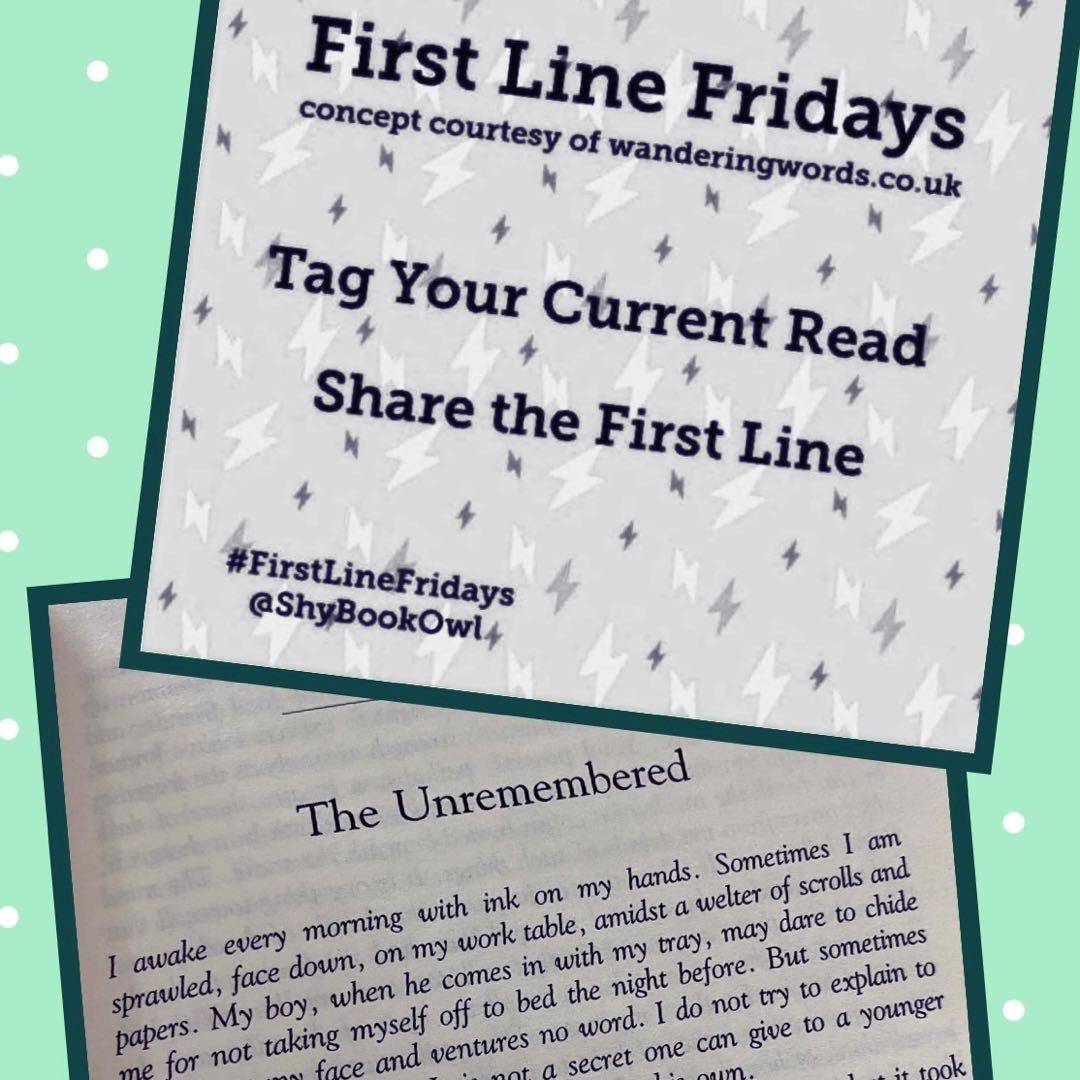 First Line Fridays
concept courtesy of wanderingwords.co.uk
Tag Your Current Read
Share the First Line
#FirstLineFridays
@ShyBookOwl
The Unremembered
I awake every morning with ink on my hands. Sometimes I am
sprawled, face down, on my work table, amidst a welter of scrolls and
papers. My boy, when he comes in with my tray, may dare to chide
me for not taking myself off to bed the night before. But sometimes
my face and ventures no word. I do not try to explain to
not a secret one can give to a younger
his own.
it took